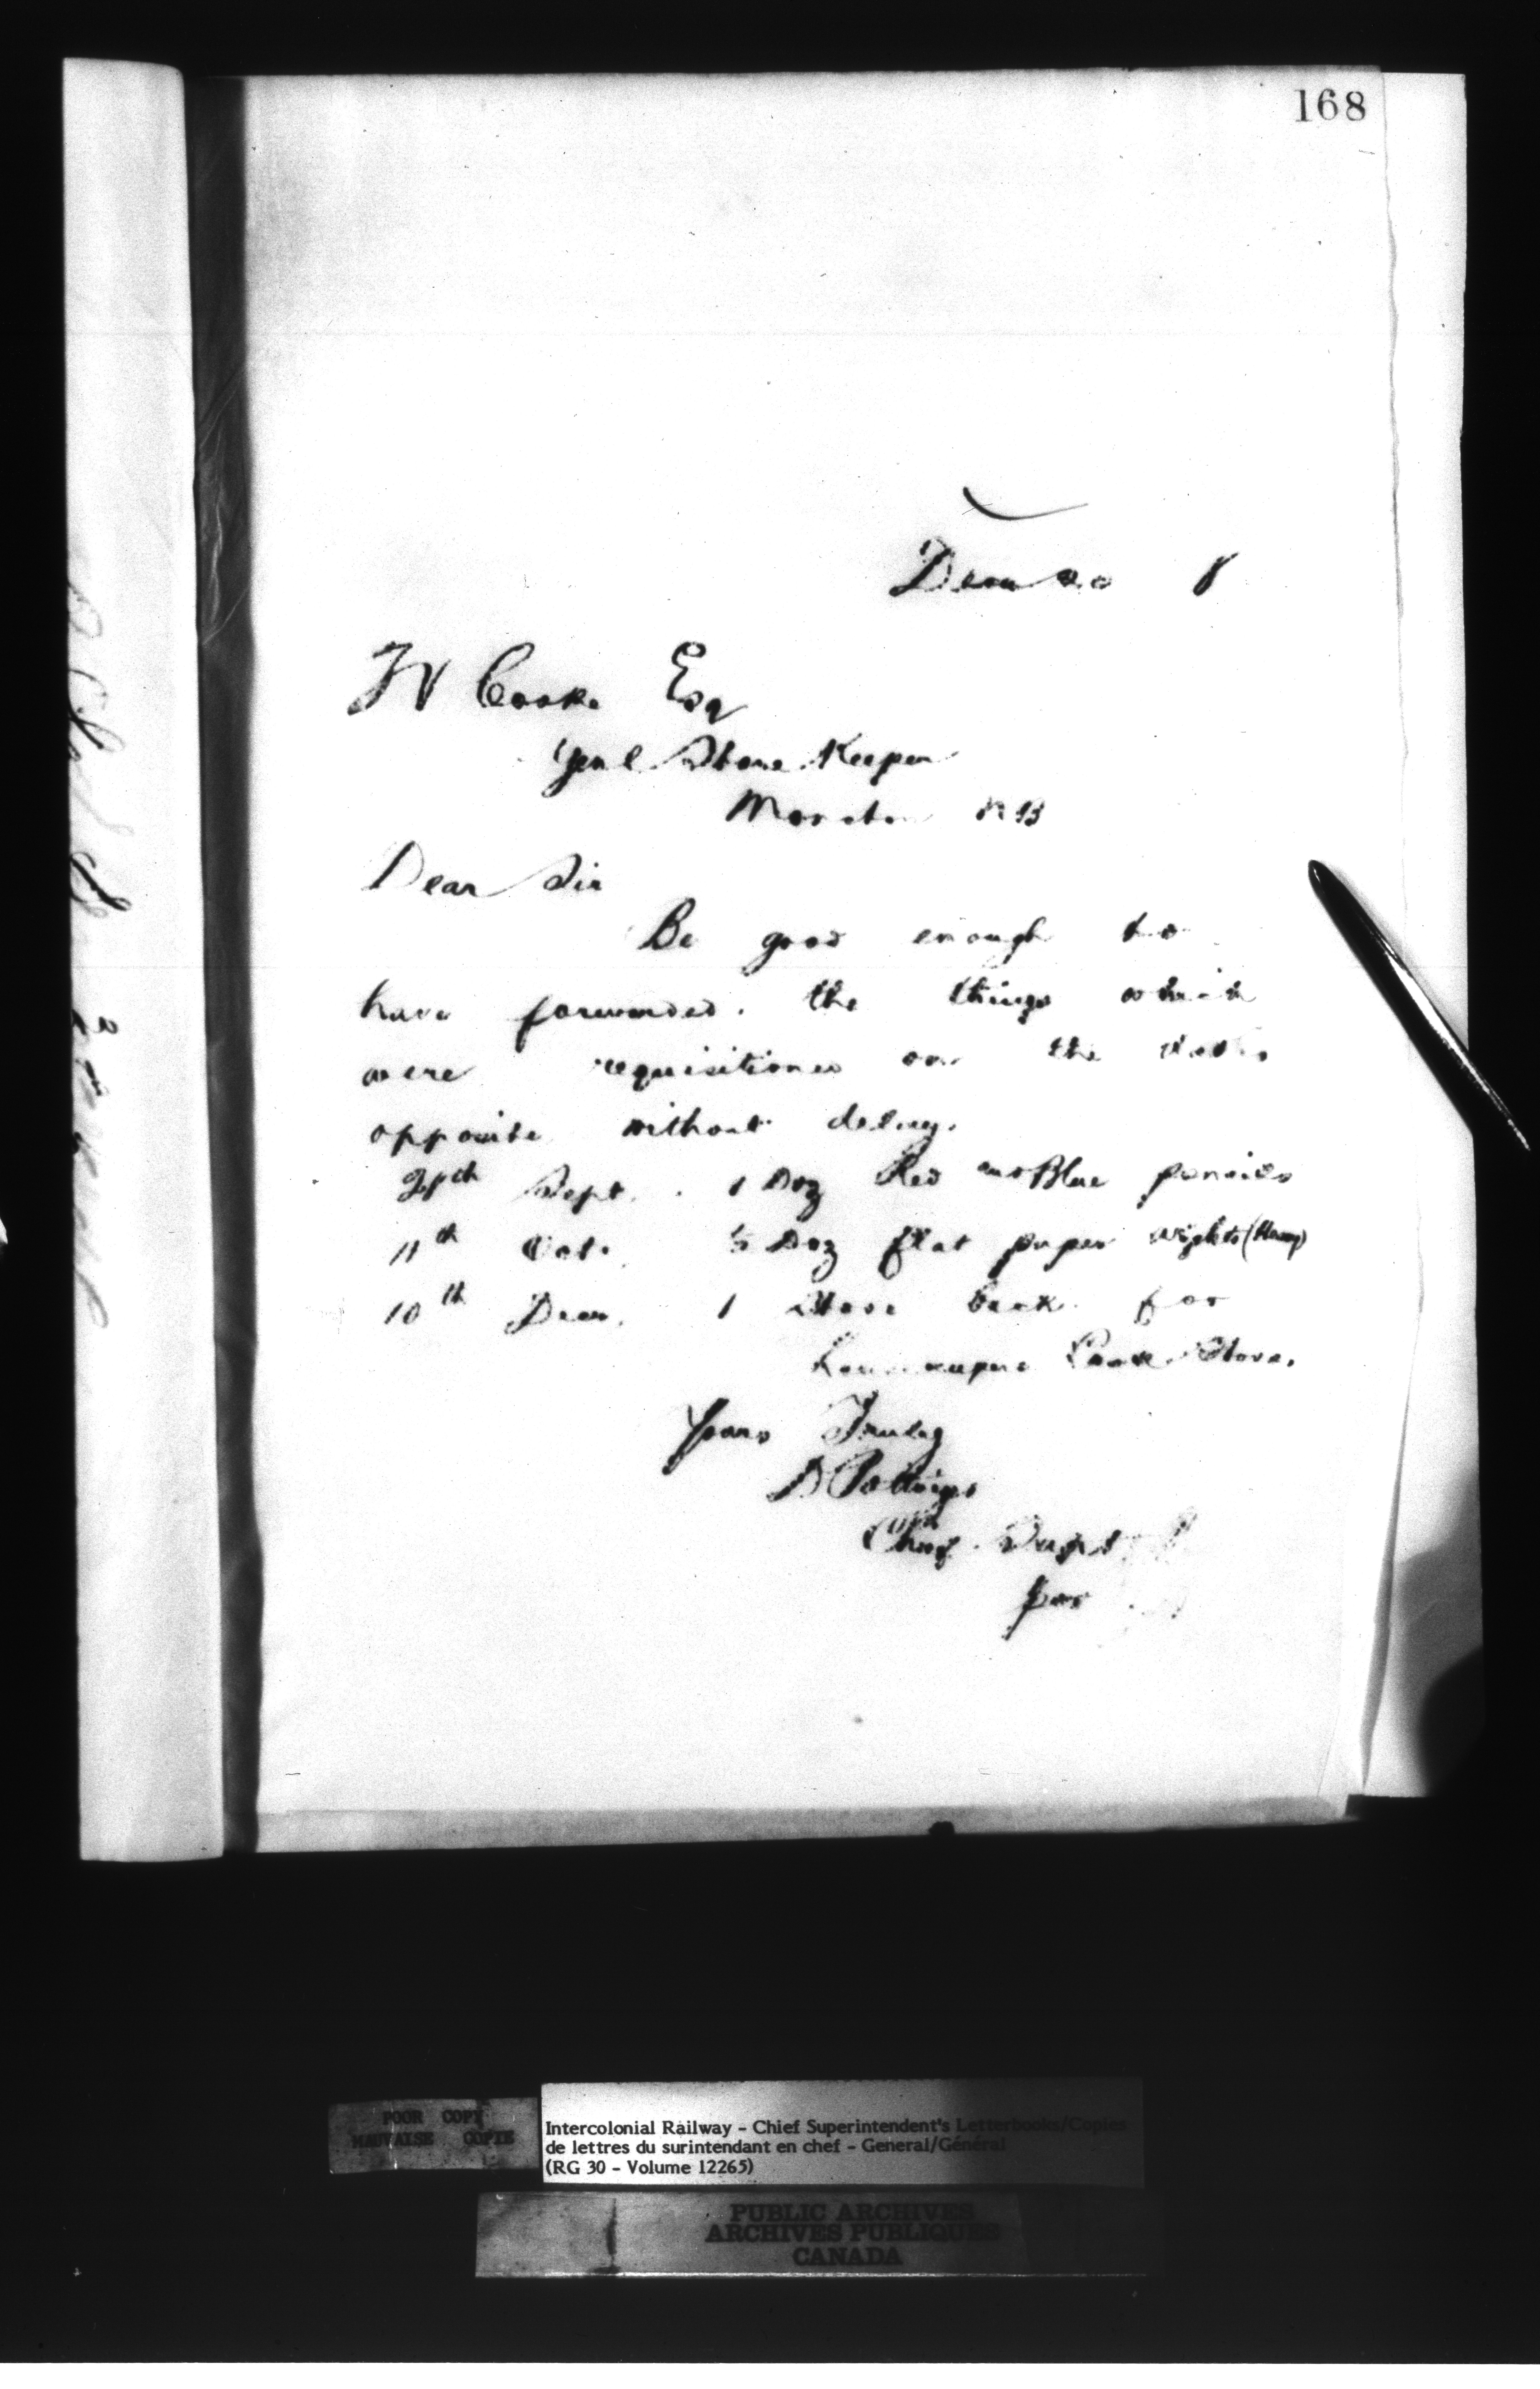 168
Cooke Esq
Genl Store Keeper
Moncton N B
Dear Sir
Be good enough to
have forwarded. the things which
were requisitioned on the dates
opposite without delay.
Sept. 1 Doz Red and Blue pencils
11th Oct. ½ Doz flat paper wights (Heavy)
10th Decr. 1 Stove back for
Cook Stove.
Yours Truly
D Pottinger
Chief Supt
per
POOR COPY
MAUVAISE COPIE
Intercolonial Railway - Chief Superintendent's Letterbooks/Copies
de lettres du surintendant en chef - General/Général
(RG 30 - Volume 12265)
PUBLIC ARCHIVES
ARCHIVES PUBLIQUES
CANADA